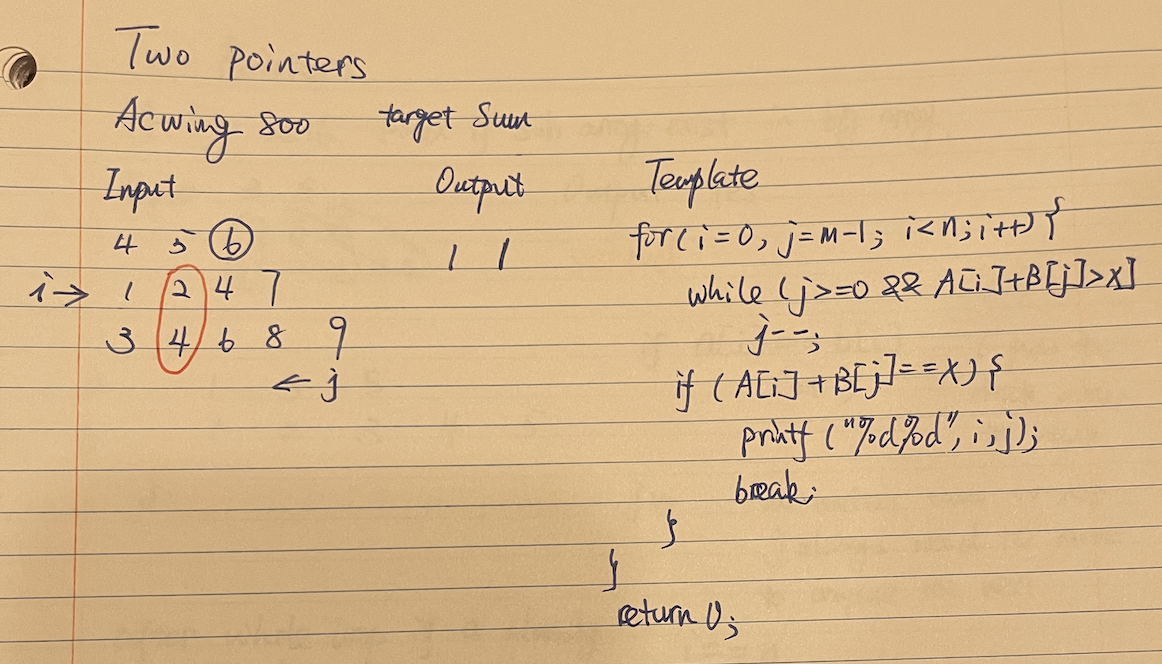 Two pointers
Acwing 800 target Sum
Input Output
4 5 6 1 1
i→ 1 2 4 7
3 4 6 8 9
← j
Template
for(i=0, j=m-1; i<n; i++) {
while (j>=0 && A[i]+B[j]>x]
j--;
if (A[i]+B[j]==x) {
printf ("%d%d", i, j);
break;
}
}
return 0;